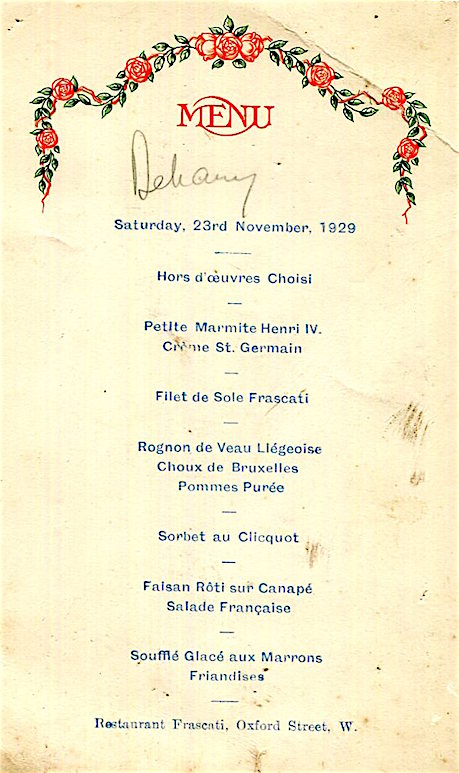 MENU
Saturday, 23rd November, 1929
Hors d'œuvres Choisi
Petite Marmite Henri IV.
Crème St. Germain
Filet de Sole Frascati
Rognon de Veau Liégeoise
Choux de Bruxelles
Pommes Purée
Sorbet au Clicquot
Faisan Rôti sur Canapé
Salade Française
Soufflé Glacé aux Marrons
Friandises
Restaurant Frascati, Oxford Street, W.